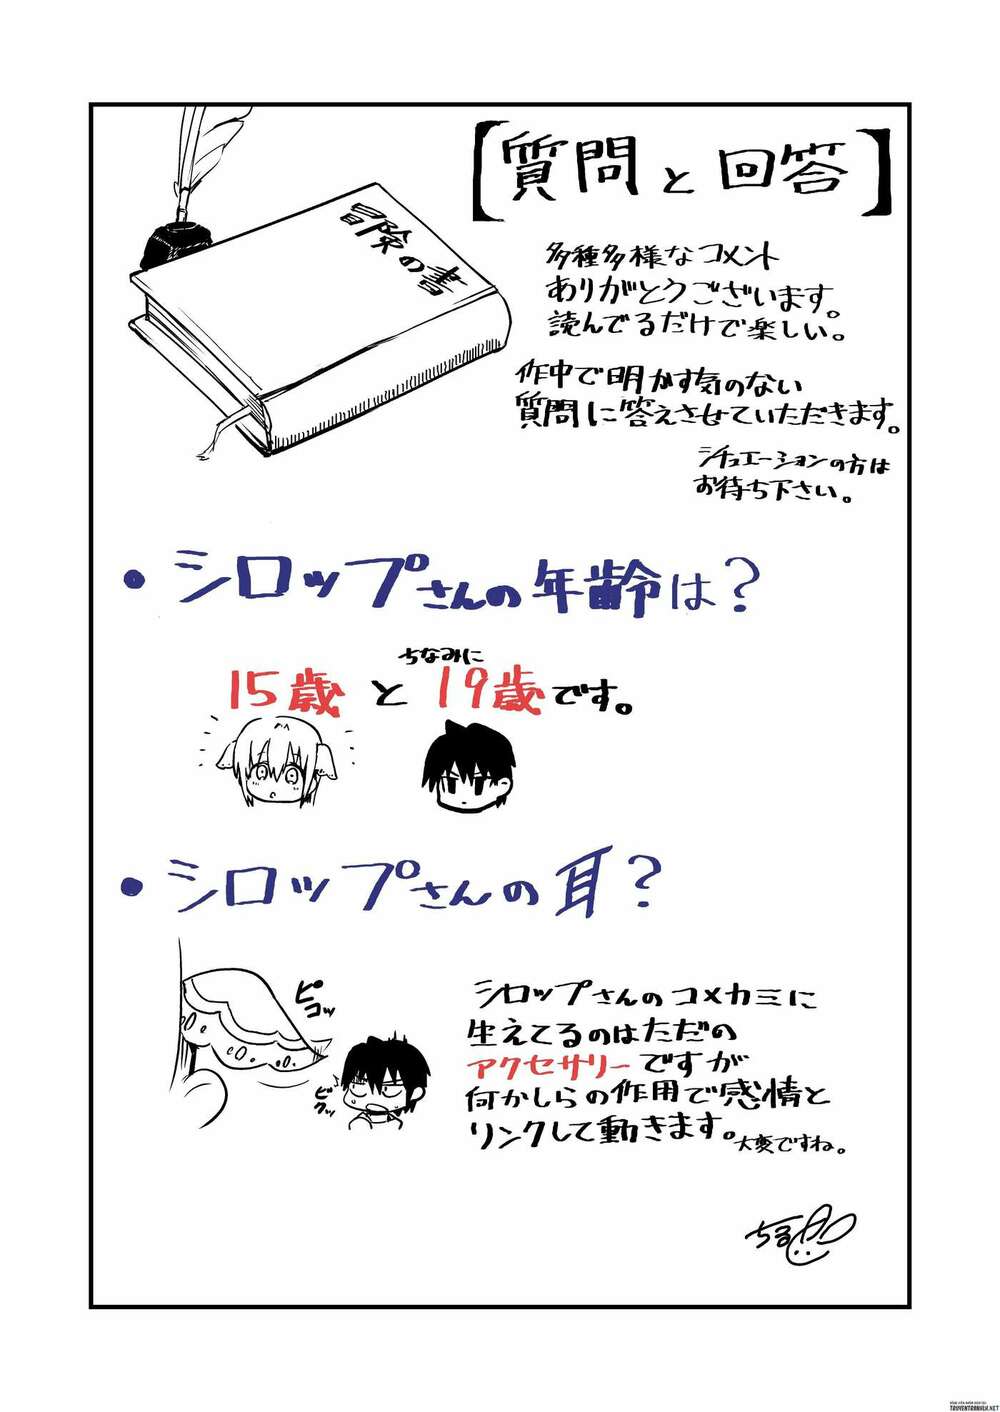 【質問と回答】
冒険の書
多種多様なコメント
ありがとうございます。
読んでるだけで楽しい。
作中で明かす気のない
質問に答えさせていただきます。
シチュエーションの方は
お待ち下さい。
・シロップさんの年齢は？
ちなみに
15歳と19歳です。
・シロップさんの耳？
ピコッ
ビクッ
シロップさんのコメカミに
生えてるのはただの
アクセサリーですが
何かしらの作用で感情と
リンクして動きます。大変ですね。
TRUYENTRANHLH.NET